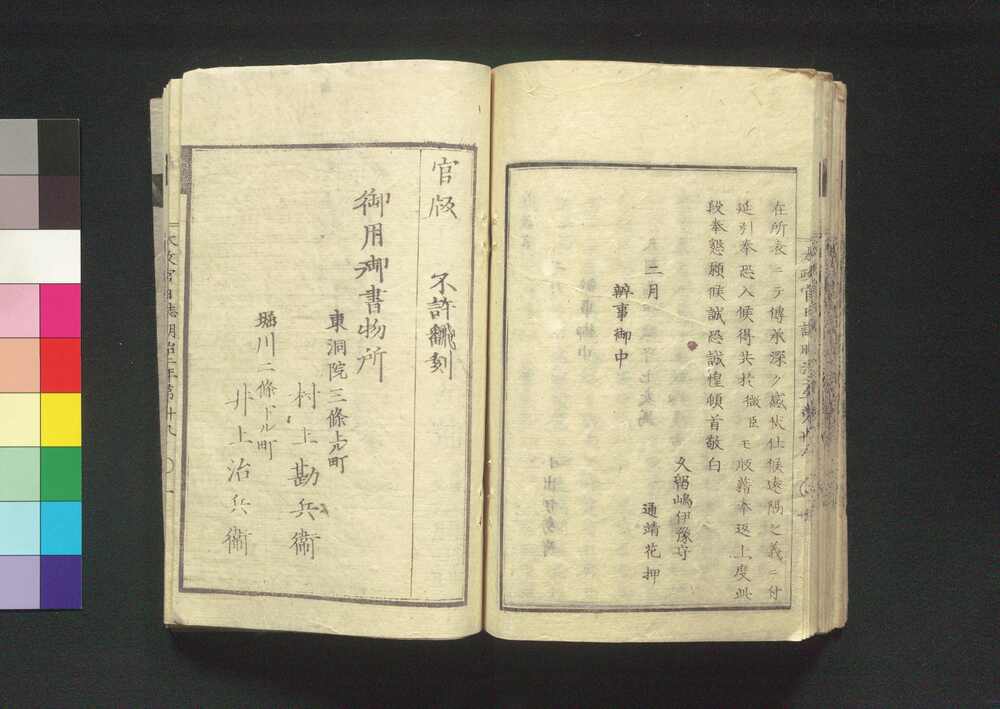 在所表ニテ傳承深ク感伏仕候遠隔之義ニ付
延引奉恐入候得共於微臣モ版籍奉返上度此
段奉懇願候誠恐誠惶頓首敬白
久留嶋伊豫守
二月　通靖花押
辨事御中
官版　不許翻刻
御用御書物所
東洞院三條上ル町
村上勘兵衞
堀川二條下ル町
井上治兵衞
太政官日誌明治二年第十九